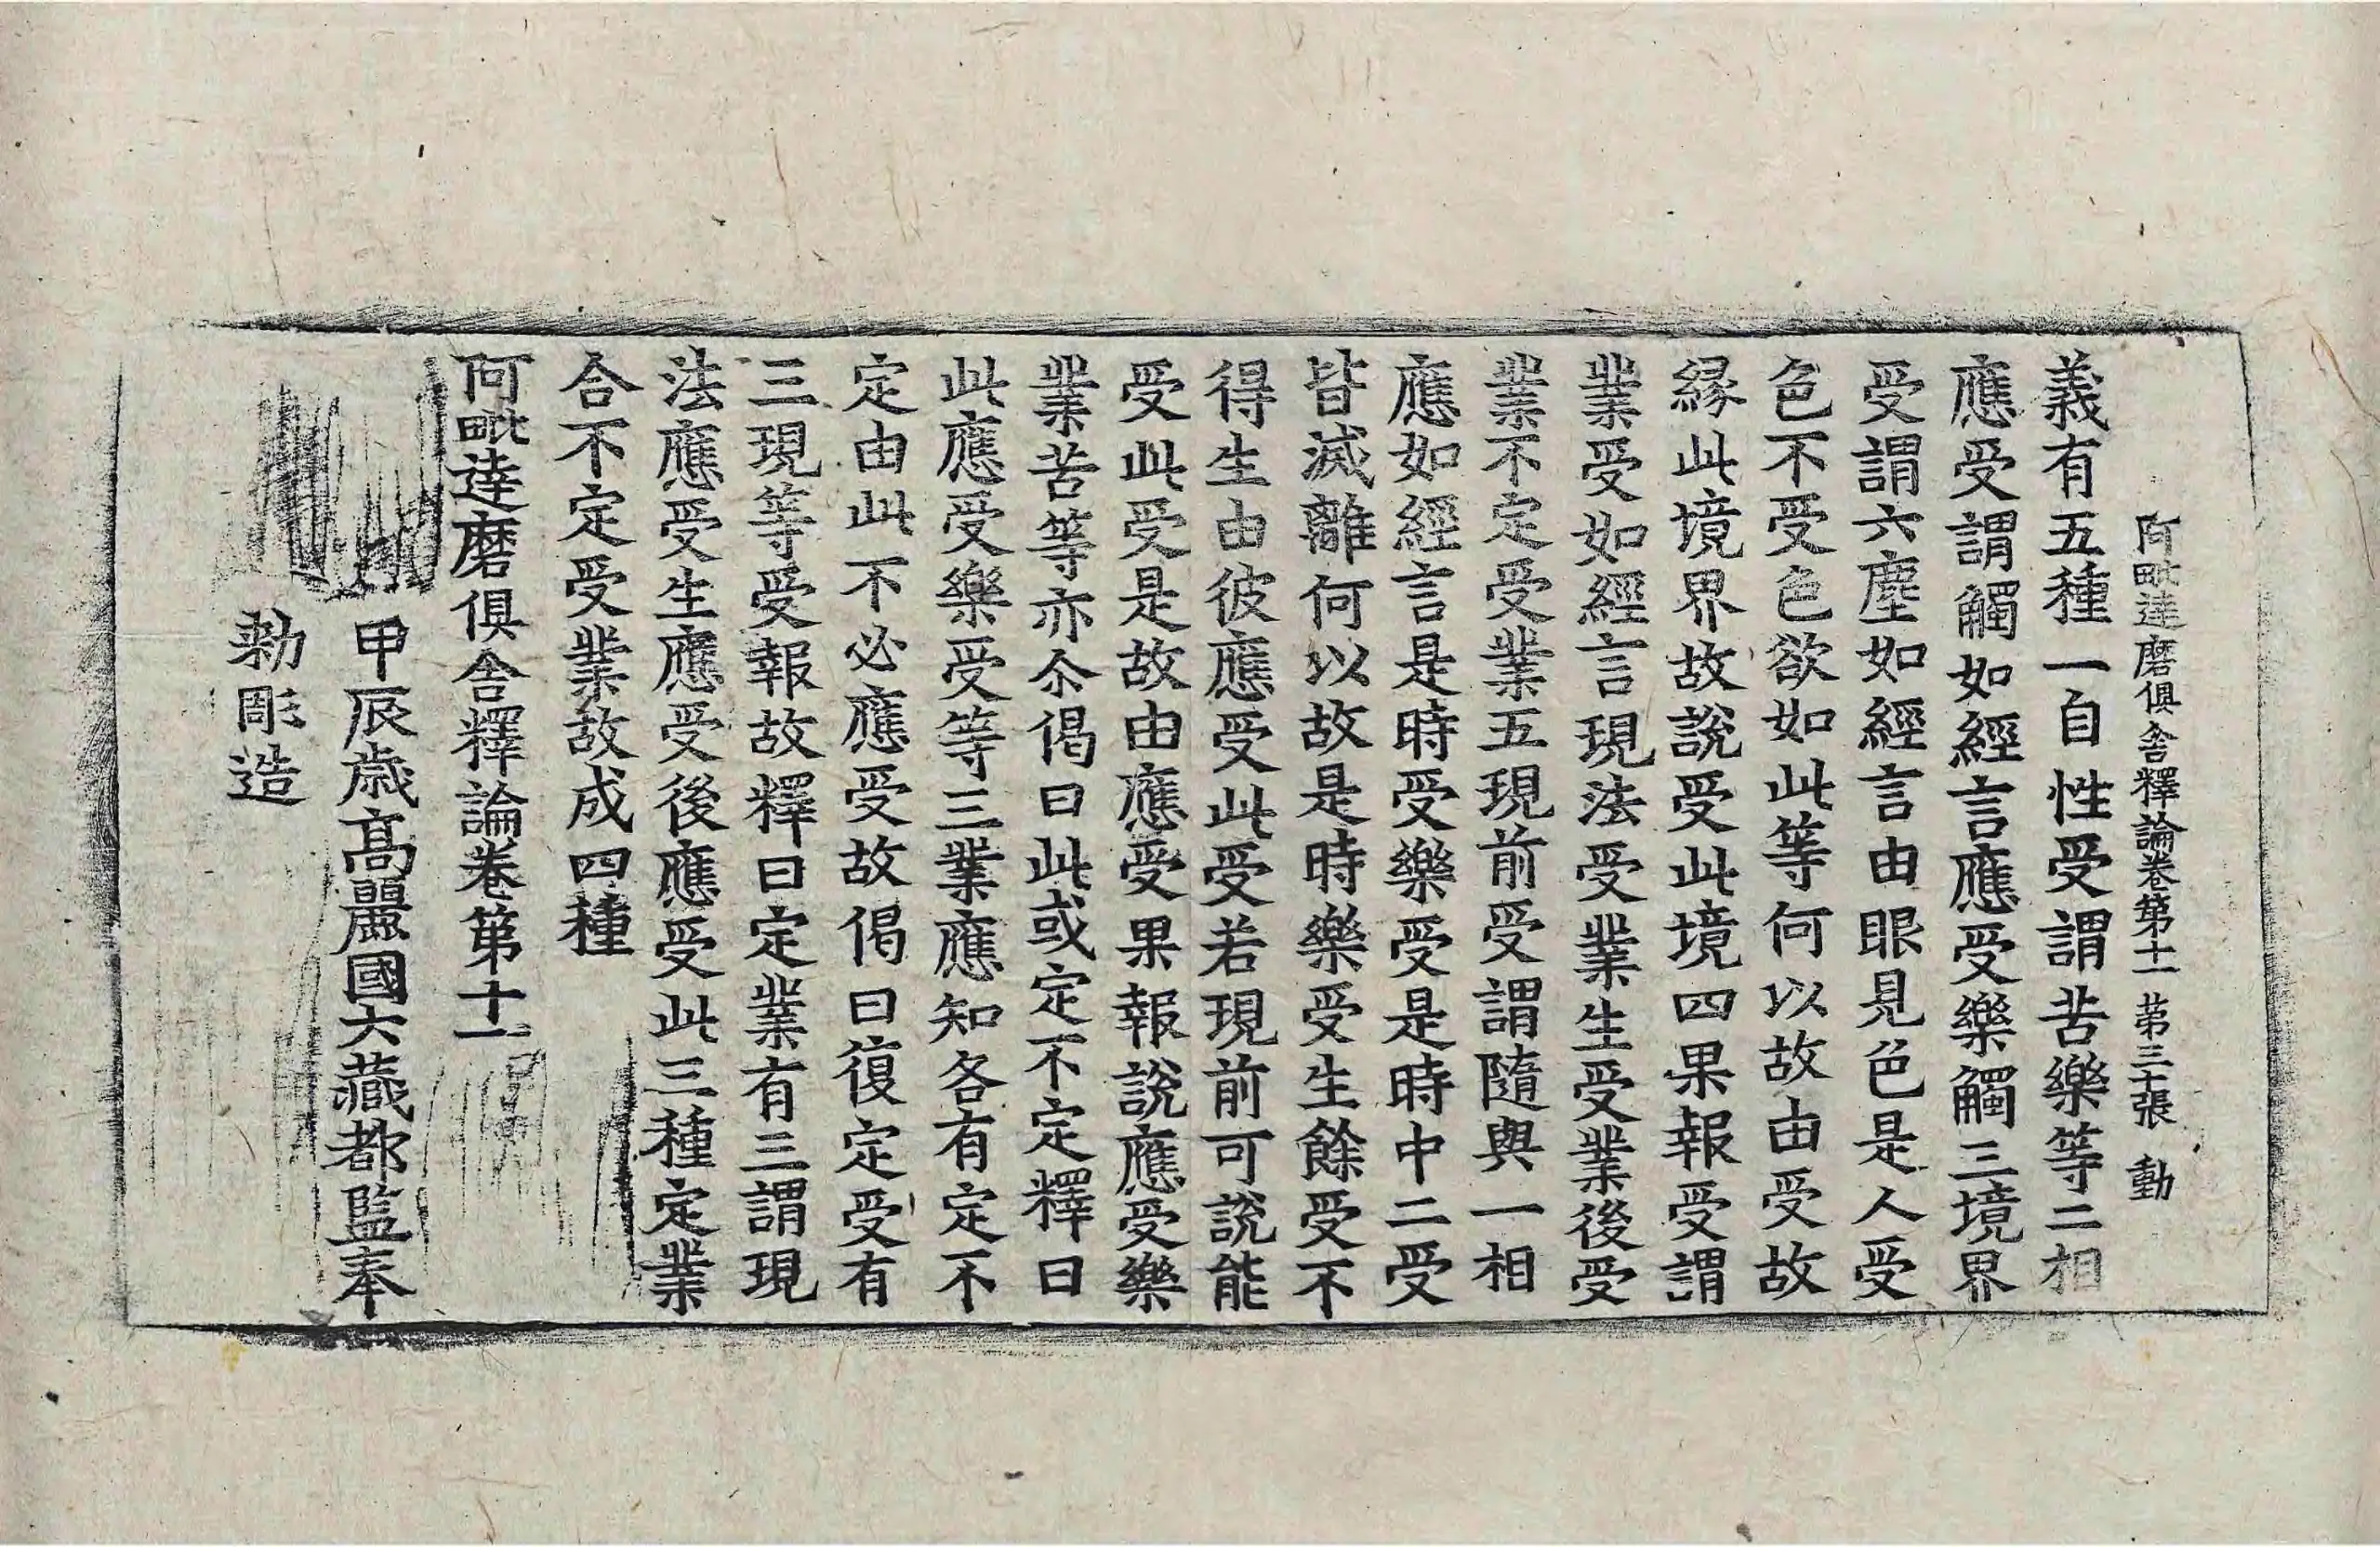 阿毗達磨俱舍釋論卷第十一 苐三十張 動
義有五種一自性受謂苦樂等二相
應受謂觸如經言應受樂觸三境界
受謂六塵如經言由眼見色是人受
色不受色欲如此等何以故由受故
縁此境界故說受此境四果報受謂
業受如經言現法受業生受業後受
業不定受業五現前受謂隨與一相
應如經言是時受樂受是時中二受
皆滅離何以故是時樂受生餘受不
得生由彼應受此受若現前可說能
受此受是故由應受果報說應受樂
業苦等亦尒偈曰此或定不定釋曰
此應受樂受等三業應知各有定不
定由此不必應受故偈曰復定受有
三現等受報故釋曰定業有三謂現
法應受生應受後應受此三種定業
合不定受業故成四種
阿毗達磨俱舍釋論卷第十一
甲辰歲髙麗國大藏都監奉
勑彫造